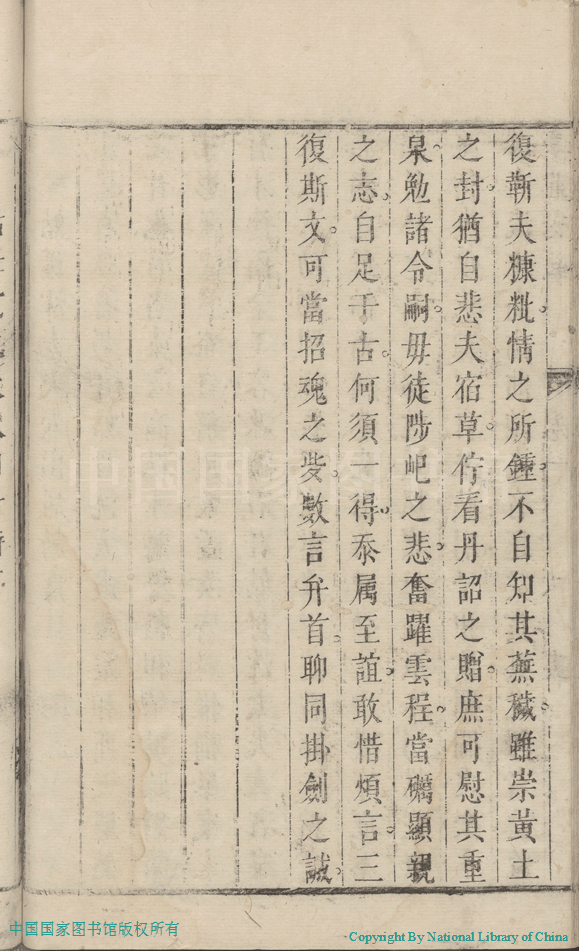 復蘄夫糠粃情之所鍾不自知其蕪穢雖崇黃土
之封猶自悲夫宿草佇看丹詔之贈庶可慰其重
泉勉諸令嗣毋徒陟屺之悲奮躍雲程當礪顯親
之志自足千古何須一得忝属至誼敢惜煩言三
復斯文可當招魂之些數言弁首聊同掛劍之誠
中国国家图书馆版权所有
Copyright By National Library of China